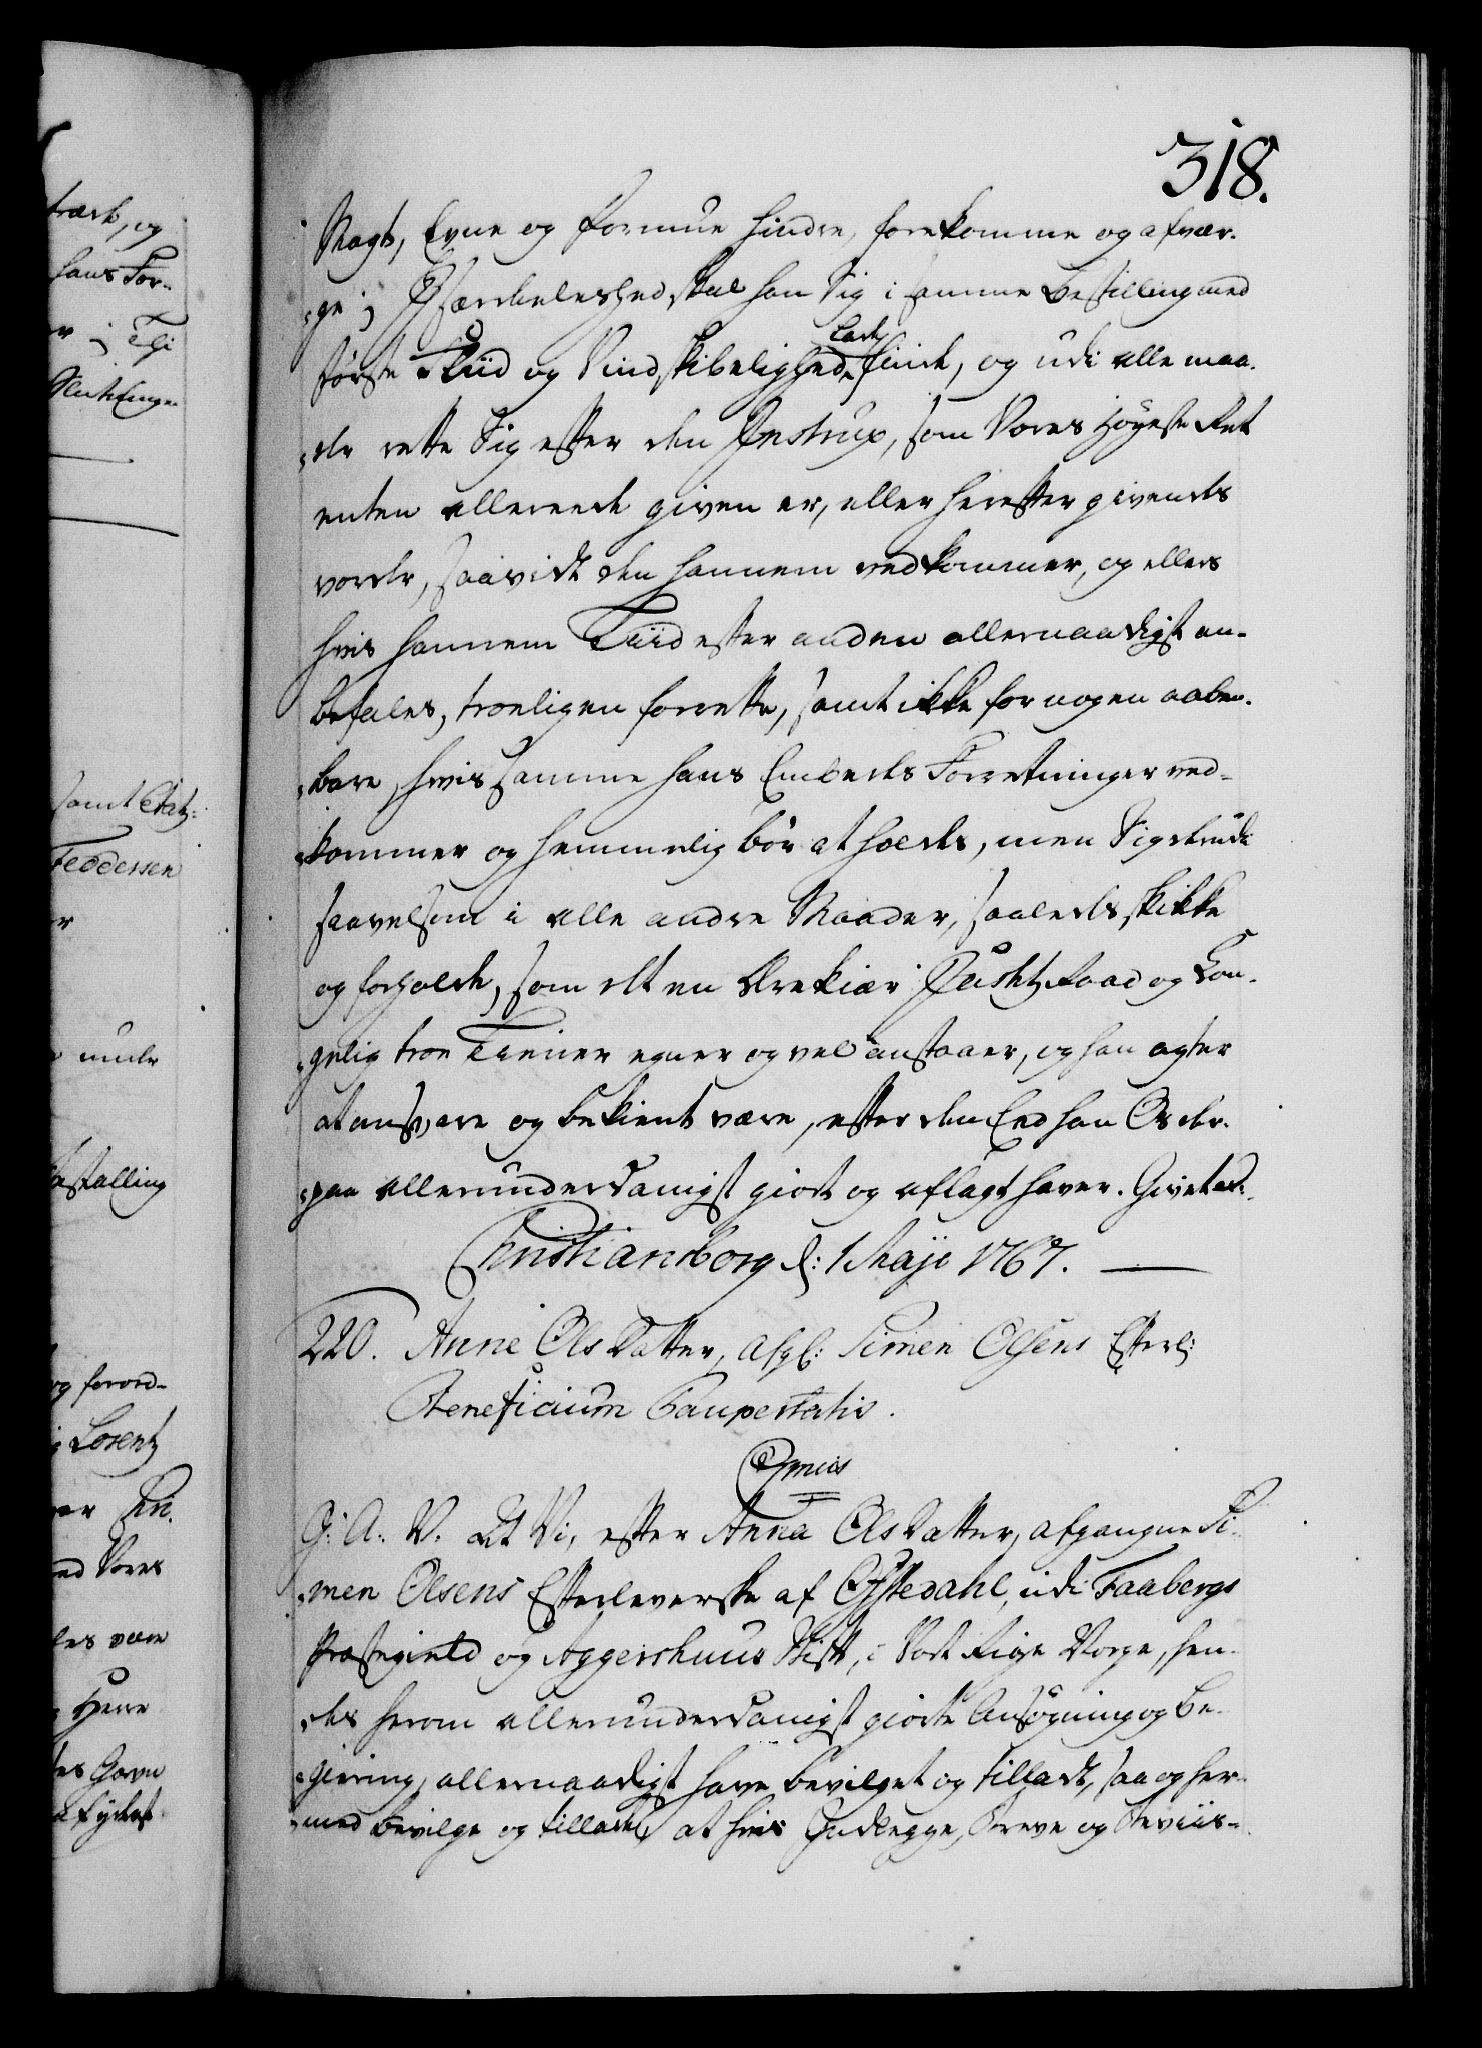 318.
Magt, Evne og Formue hindre, forekomme og afvær-
ge; I særdeleshed skal han Sig i samme Bestilling med
første Fliid og Vindskibelighed lade finde, og udi alle maa-
der rette Sig efter den Instrux, som Vores Høyeste Ret
enten allereede given er, eller herefter givendes
vorder, saavidt den hannem vedkommer, og ellers
hvis hannem Tiid efter anden allernaadigst an-
befales, troeligen forrette, samt ikke for nogen aaben-
bare, hvis samme hans Embeds Forretninger ved-
kommer og hemmelig bør at holdes, men Sig derudi
saavelsom i alle andre Maader, saaledes skikke
og forholde, som det en Ærekiær Justitz Raad og Kon-
gelig troe Tiener egner og vel anstaaer, og han agter
at ansvare og bekient være, efter den Eed han Os der-
paa allerunderdanigst giort og aflagt haver. Givet etc:
Christiansborg d: 1 Maji 1767.
220. Anne Ols Datter, afg: Simen Olsens Efterl:
Beneficium Paupertatis.
Gratis
G: A: V. At Vi, efter Anna Ols Datter, afgangne Si-
men Olsens Efterleverske af Ofstedahl, udi Faabergs
Præstegield og Aggershuus Stift, i Vort Rige Norge, hen-
des herom allerunderdanigst giorte Ansøgning og Be-
giering, allernaadigst have bevilget og tilladt, saa og her-
med bevilge og tillade, at hvis Indlegge, Breve og Beviis-
træde, og
hans For-
samt Etatz-
Feddersen
Bestalling
og forord-
Lorentz
Vores
Herre
Gavn